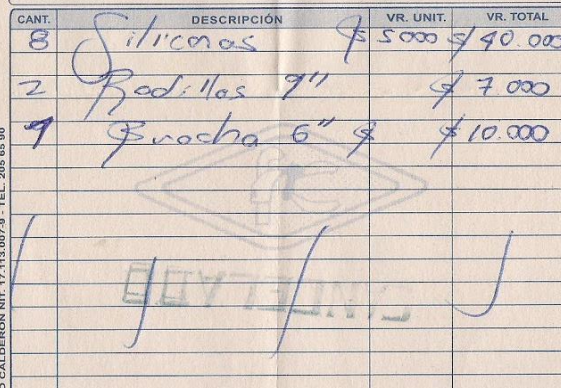 CANT. DESCRIPCIÓN VR. UNIT. VR. TOTAL
8 Siliconas $ 5000 $ 40.000
2 Rodillos 9" $ 7 000
1 Brocha 6" $ $ 10.000
O CALDERON NIT. 17.113.007-9 - TEL. 205 65 90